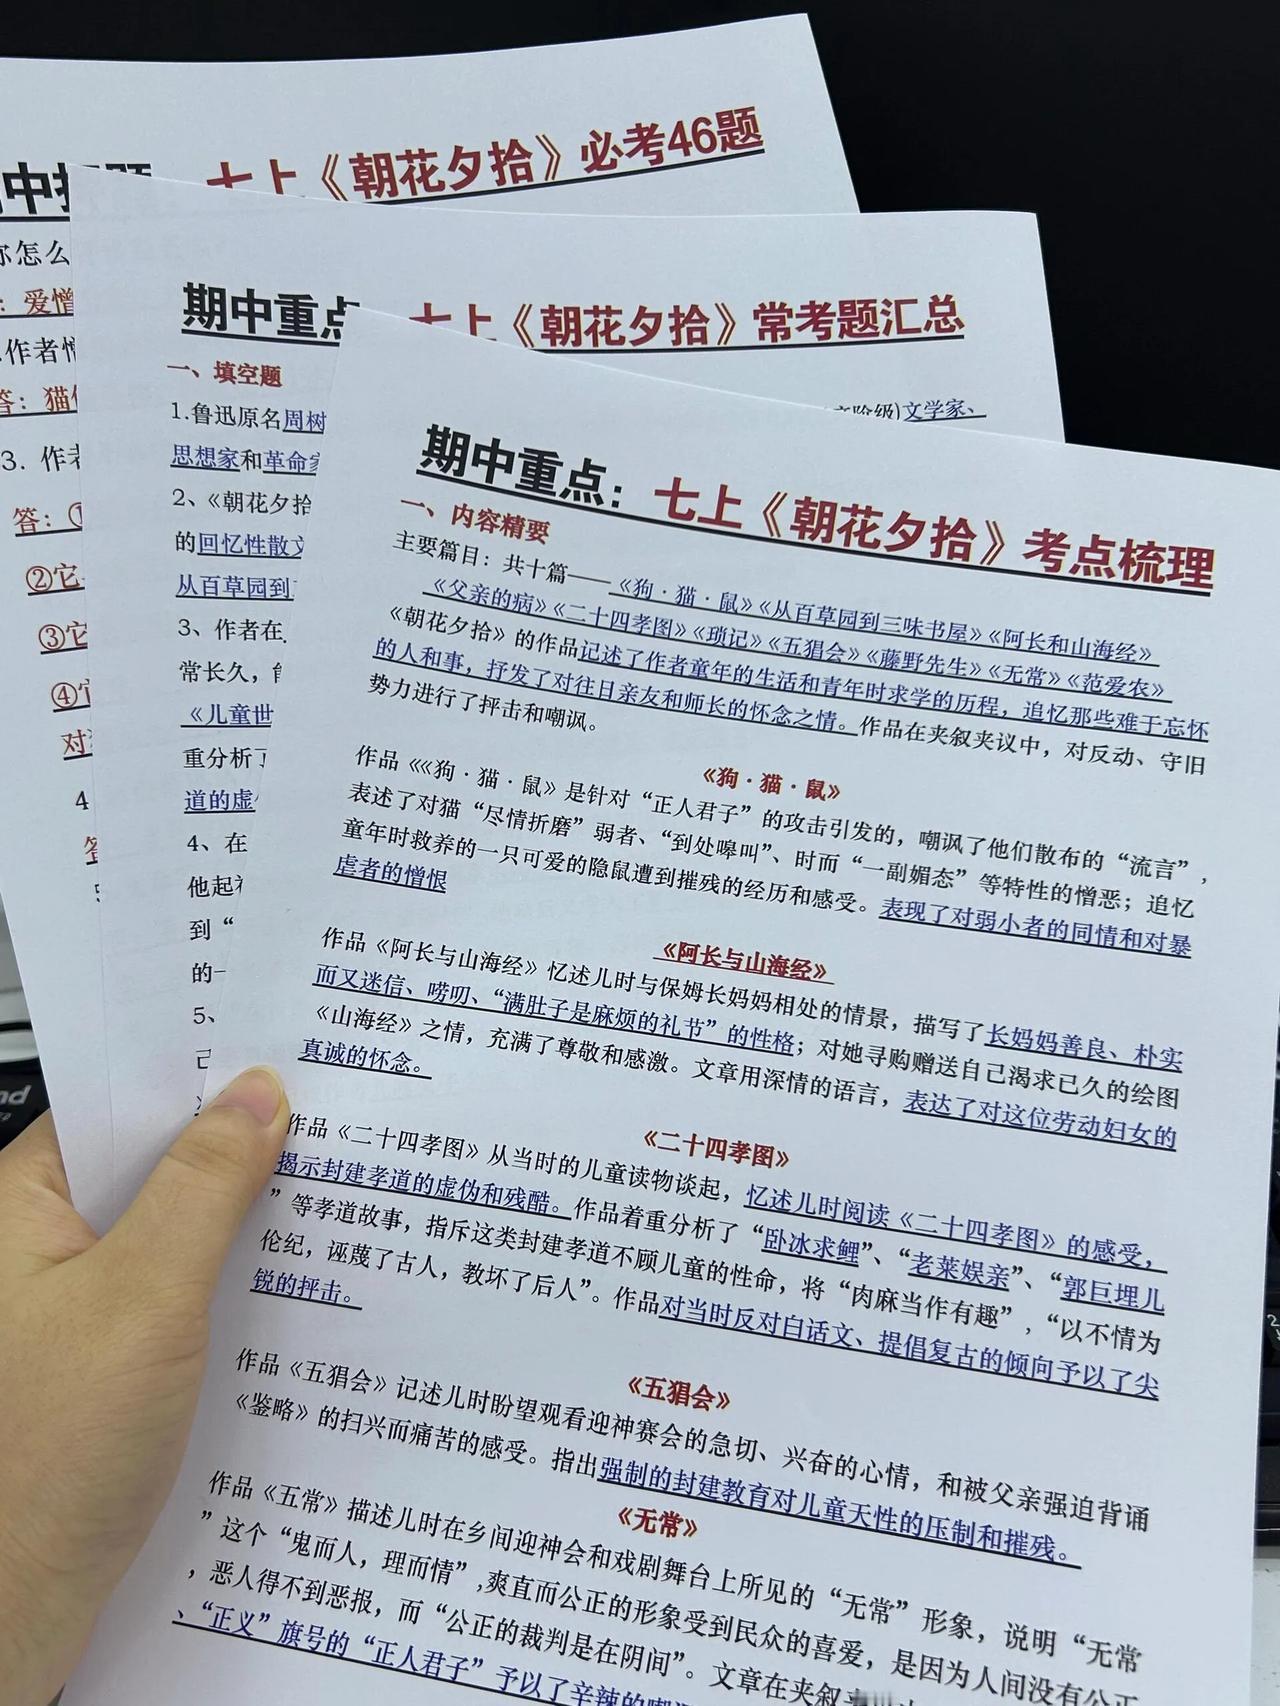 七上《朝花夕拾》必考46题
你怎么
：爱憎
作者憎
答：猫
3. 作者
答：①
②它
③它
④它
对
4
答
期中重点 七上《朝花夕拾》常考题汇总
一、填空题
1.鲁迅原名周树
阶级)文学家、
思想家和革命家
2、《朝花夕拾
的回忆性散文
从百草园到
3、作者在
常长久，
《儿童世
重分析了
道的虚
4、在
他起
到“
的一
5、
己
期中重点：七上《朝花夕拾》考点梳理
一、内容精要
主要篇目：共十篇——《狗·猫·鼠》《从百草园到三味书屋》《阿长和山海经》
《父亲的病》《二十四孝图》《琐记》《五猖会》《藤野先生》《无常》《范爱农》
《朝花夕拾》的作品记述了作者童年的生活和青年时求学的历程，追忆那些难于忘怀
的人和事，抒发了对往日亲友和师长的怀念之情。作品在夹叙夹议中，对反动、守旧
势力进行了抨击和嘲讽。
《狗·猫·鼠》
作品《《狗·猫·鼠》是针对“正人君子”的攻击引发的，嘲讽了他们散布的“流言”，
表述了对猫“尽情折磨”弱者、“到处嗥叫”、时而“一副媚态”等特性的憎恶；追忆
童年时救养的一只可爱的隐鼠遭到摧残的经历和感受。表现了对弱小者的同情和对暴
虐者的憎恨
《阿长与山海经》
作品《阿长与山海经》忆述儿时与保姆长妈妈相处的情景，描写了长妈妈善良、朴实
而又迷信、唠叨、“满肚子是麻烦的礼节”的性格；对她寻购赠送自己渴求已久的绘图
《山海经》之情，充满了尊敬和感激。文章用深情的语言，表达了对这位劳动妇女的
真诚的怀念。
《二十四孝图》
作品《二十四孝图》从当时的儿童读物谈起，忆述儿时阅读《二十四孝图》的感受，
揭示封建孝道的虚伪和残酷。作品着重分析了“卧冰求鲤”、“老莱娱亲”、“郭巨埋儿
”等孝道故事，指斥这类封建孝道不顾儿童的性命，将“肉麻当作有趣”，“以不情为
伦纪，诬蔑了古人，教坏了后人”。作品对当时反对白话文、提倡复古的倾向予以了尖
锐的抨击。
《五猖会》
作品《五猖会》记述儿时盼望观看迎神赛会的急切、兴奋的心情，和被父亲强迫背诵
《鉴略》的扫兴而痛苦的感受。指出强制的封建教育对儿童天性的压制和摧残。
《无常》
作品《五常》描述儿时在乡间迎神会和戏剧舞台上所见的“无常”形象，说明“无常
”这个“鬼而人，理而情”,爽直而公正的形象受到民众的喜爱，是因为人间没有公正
，恶人得不到恶报，而“公正的裁判是在阴间”。文章在夹叙
、“正义”旗号的“正人君子”予以了辛辣的嘲